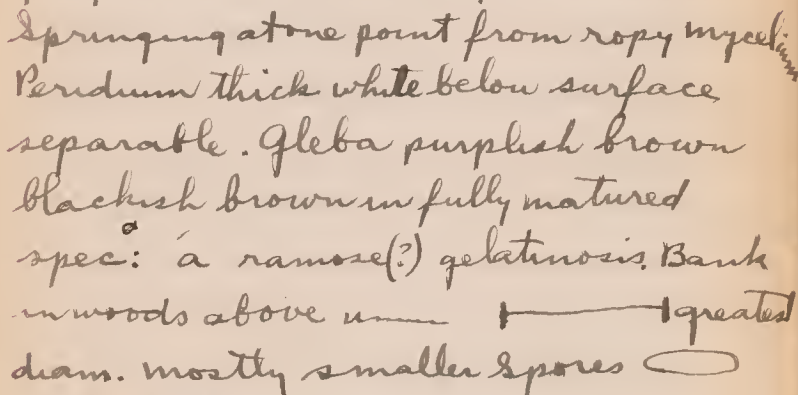 Springing at one point from ropy mycelium
Peridium thick white below surface
separable. Gleba purplish brown
blackish brown in fully matured
spec: a ramose(?) gelatinosis. Bank
in woods above greatest
diam. mostly smaller spores